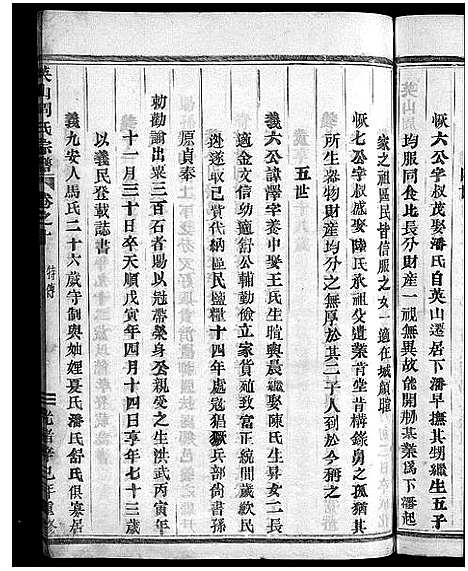 恢六公字叔茂娶潘氏自英山遷居下潘早撫其甥繼生五子
均服同食比長分財産一視無異故能開刱基業爲下潘起
家之祖區民皆信服之女一適在城顧瓘
恢七公字叔盛娶陳氏永承祖父遺業肯堂肯構錄舅之孤猶其
所生器物財産均分之無厚於其二子人到於今稱之
五世
義六公諱澤字養中娶王氏生暄與晨繼娶陳氏生昇女二長
適金文信幼適舒公輔勤儉立家貲殖致富正統間歲歉民
逃遂取己貲代納區民鹽糧十四年處寇猖獗兵部尚書孫
原貞奉
勅勸諭出粟三百石者賜以冠帶榮身公親受之生洪武丙寅年
十一月三十日卒天順戊寅年四月十四日享年七十三歲
以義民登載誌書
義九安人馬氏二十六歲守制與妯娌夏氏潘氏舒氏俱寡居
英山周氏宗譜 卷之十 特傳
光緒辛巳年重修